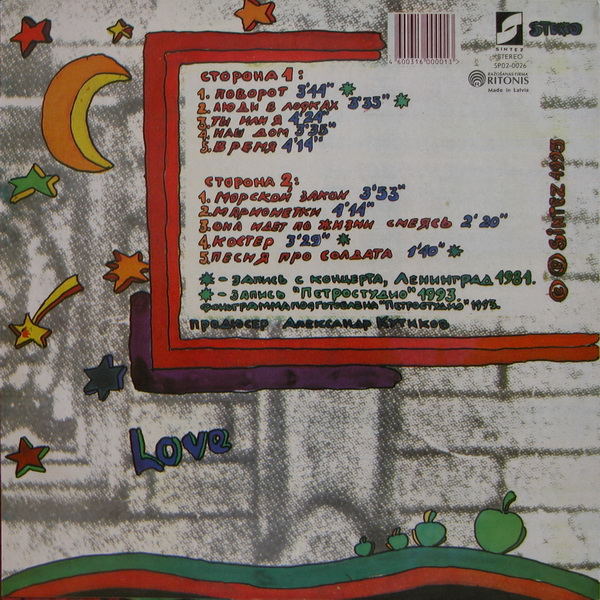 4600316000013
SINTEZ
STEREO
SP02-0026
STEREO
RAŽOŠANAS FIRMA
RITONIS
Made in Latvia
СТОРОНА 1:
1. ПОВОРОТ 3'44" *
2. ЛЮДИ В ЛОДКАХ 3'35" *
3. ТЫ ИЛИ Я 4'24"
4. НАШ ДОМ 3'35"
5. ВРЕМЯ 4'14"
СТОРОНА 2:
1. МОРСКОЙ ЗАКОН 3'53"
2. МАРИОНЕТКИ 4'14"
3. ОНА ИДЕТ ПО ЖИЗНИ СМЕЯСЬ 2'20"
4. КОСТЕР 3'29" *
5. ПЕСНЯ ПРО СОЛДАТА 1'40" *
* - ЗАПИСЬ С КОНЦЕРТА, ЛЕНИНГРАД 1981.
* - ЗАПИСЬ "ПЕТРОСТУДИО" 1993.
ФОНОГРАММА ПОДГОТОВЛЕНА "ПЕТРОСТУДИО" 1993.
ПРОДЮСЕР АЛЕКСАНДР КУТИКОВ
© ℗ SINTEZ 1993
Love